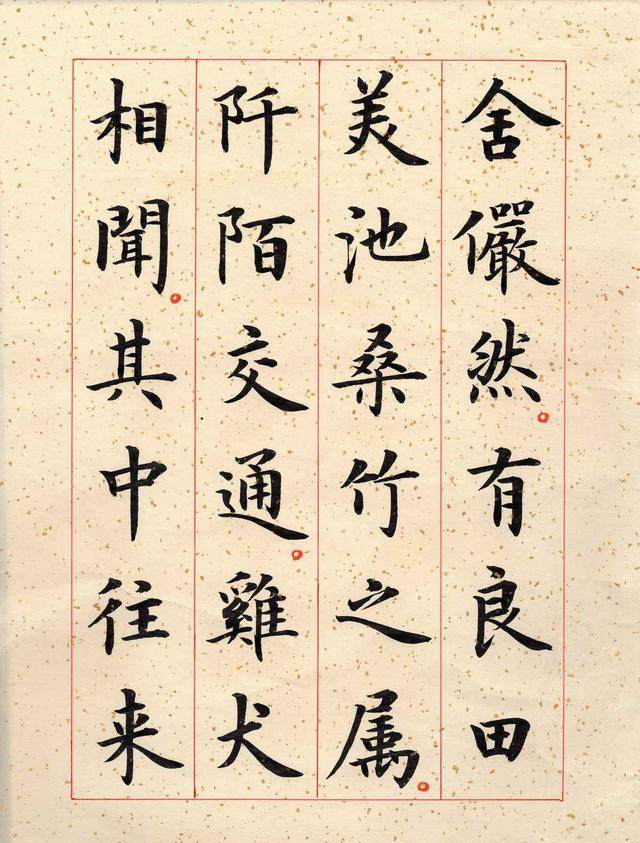 舍儼然。有良田
美池桑竹之属。
阡陌交通。雞犬
相聞。其中往来